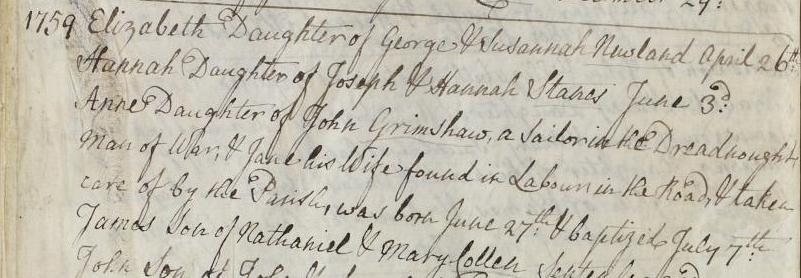 29:
1759 Elizabeth Daughter of George & Susannah Newland April 26th:
Hannah Daughter of Joseph & Hannah Stanes June 3d:
Anne Daughter of John Grimshaw, a Sailor in the Dreadnought
Man of War, & Jane his Wife found in Labour in the Road, & taken
care of by the Parish, was born June 27th: & baptized July 7th:
James Son of Nathaniel & Mary Collen
John Son of John